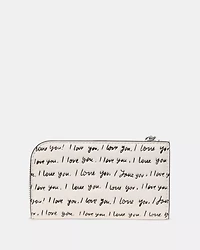 I love you! I love you, I love you. I love you
I love you. I love you. I love you, I love you.
I love you. I love you. I love you! I love you, I
I love you. I love you, I love you. I love you
love you. I love you. I love you. I love you.
I love you. I love you. I love you. I love